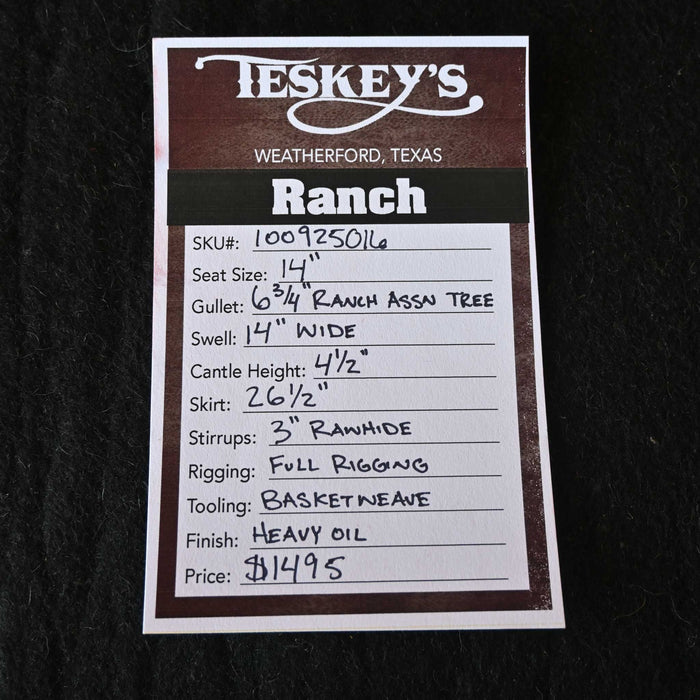 TESKEY'S
WEATHERFORD, TEXAS
Ranch
SKU#: 100925016
Seat Size: 14"
Gullet: 6 3/4" RANCH ASSN TREE
Swell: 14" WIDE
Cantle Height: 4 1/2"
Skirt: 26 1/2"
Stirrups: 3" RAWHIDE
Rigging: FULL RIGGING
Tooling: BASKETWEAVE
Finish: HEAVY OIL
Price: $1495